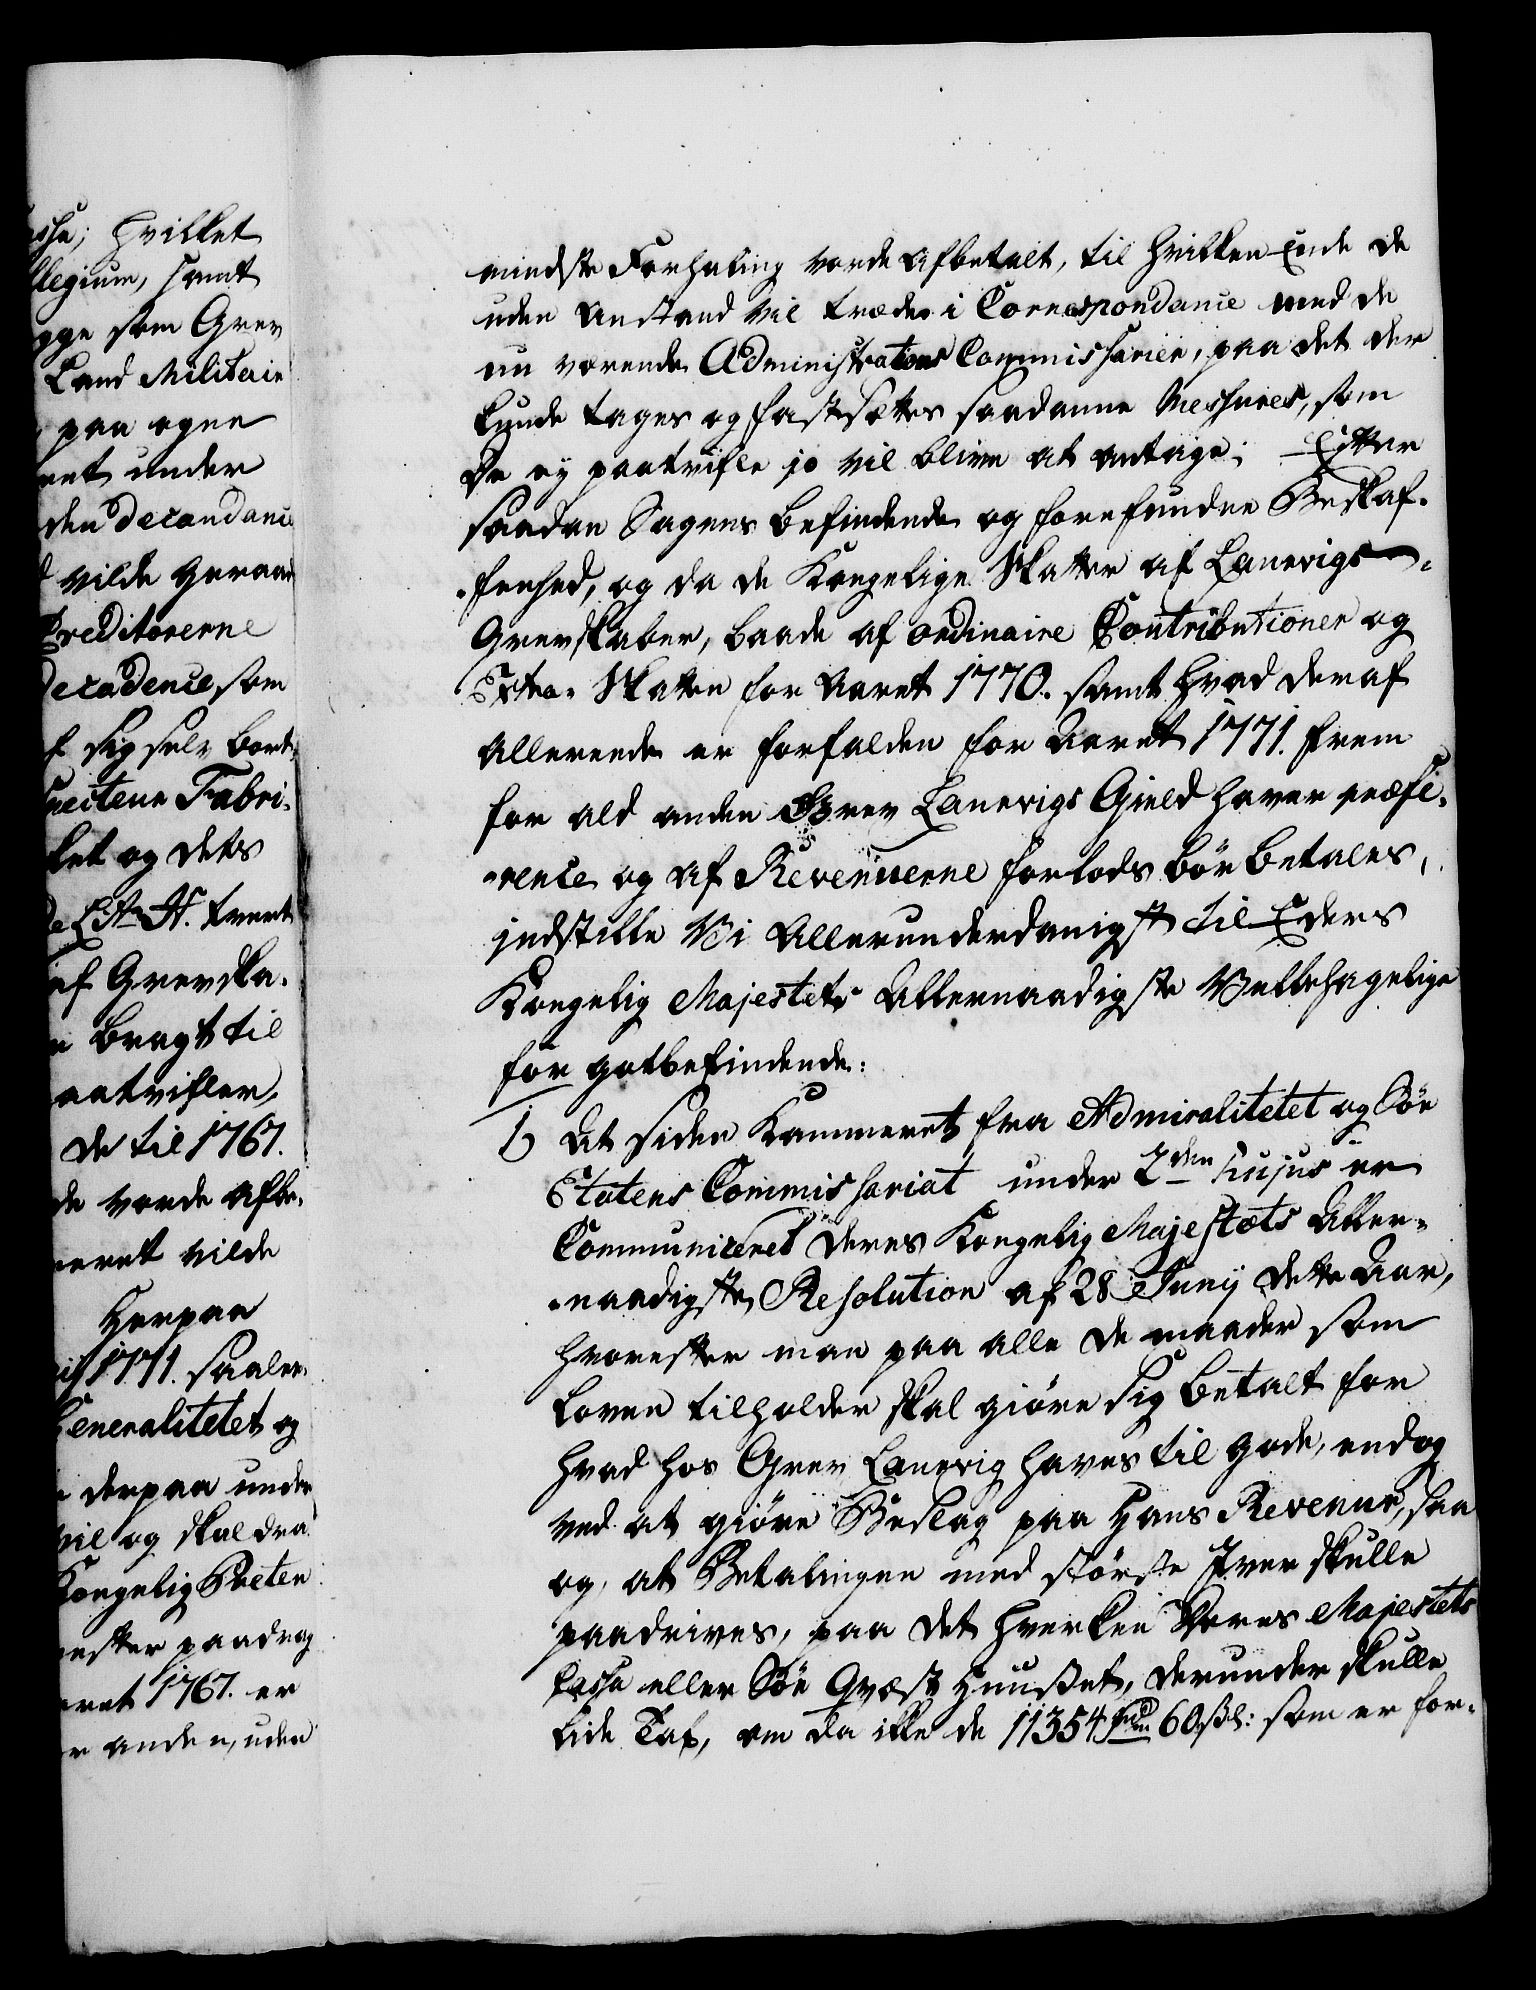 sse; hvilket
llegium, samt
gge som Grev
Land Militair
paa egne
ret under
den decandance
vilde geraad
Creditorerne
decadence som
sig selv bort
Fabri-
ket og dets
tvert
af Grevska-
bragt til
aatvifler,
de til 1767.
de vorde afbe-
neret vilde
Herpaa
1771. saale-
Generalitetet og
derpaa under
vil og skal dra
Kongelig Preten
efter paadrag
aret 1767. er
r anden, uden
mindste Forhaling vorde afbetalt, til hvilken Ende de
uden Anstand vil træde i Correspondance med de
nu værende Administrations Commissarier, paa det der
kunde tages og fastsættes saadanne Messures, som
De ey paatvifle jo vil blive at antage; Efter
saadan Sagens befindende og forefunden Beskaf-
-fenhed, og da de Kongelige Skatter af Laurvigs
Grevskaber, baade af ordinaire Contributioner og
Extra-Skatten for Aaret 1770. samt hvad deraf
allereede er forfalden for Aaret 1771. frem
for ald anden Grev Laurvigs Gield haver præfe-
-rence og af Revenuerne forlods bør betales,
indstille Vi allerunderdanigst til Eders
Kongelig Majestets Allernaadigste Velbehagelige
for gotbefindende:
1) At siden Kammeret fra Admiralitetet og Søe
Etatens Commissariat under 2den hujus er
Communiceret Deres Kongelig Majestæts Aller-
-naadigste Resolution af 28 Junij dette Aar,
hvorefter man paa alle de maader som
Loven tilholder skal giøre sig betalt for
hvad hos Grev Laurvig haves til gode, endog
ved at giøre Beslag paa Hans Revenue, saa
og, at Betalingen med største Iver skulle
paadrives, paa det hverken Deres Majestets
Casse eller Søe Qvæst Huuset, derunder skulle
lide Tab, om da ikke de 11354 Rdr 60 sk: som er for-